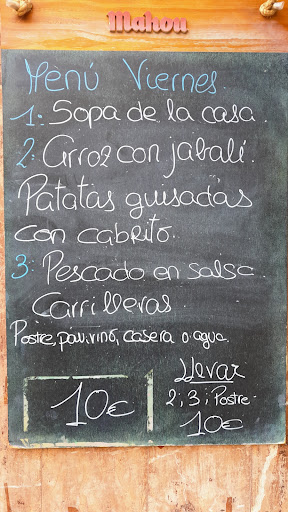 Mahou
Menú Viernes
1. Sopa de la casa.
2. Arroz con jabalí.
Patatas guisadas
con cabrito.
3. Pescado en salsa.
Carrilleras.
Postre, pan, vino, casera o agua.
10€
Llevar
2; 3; Postre
10€